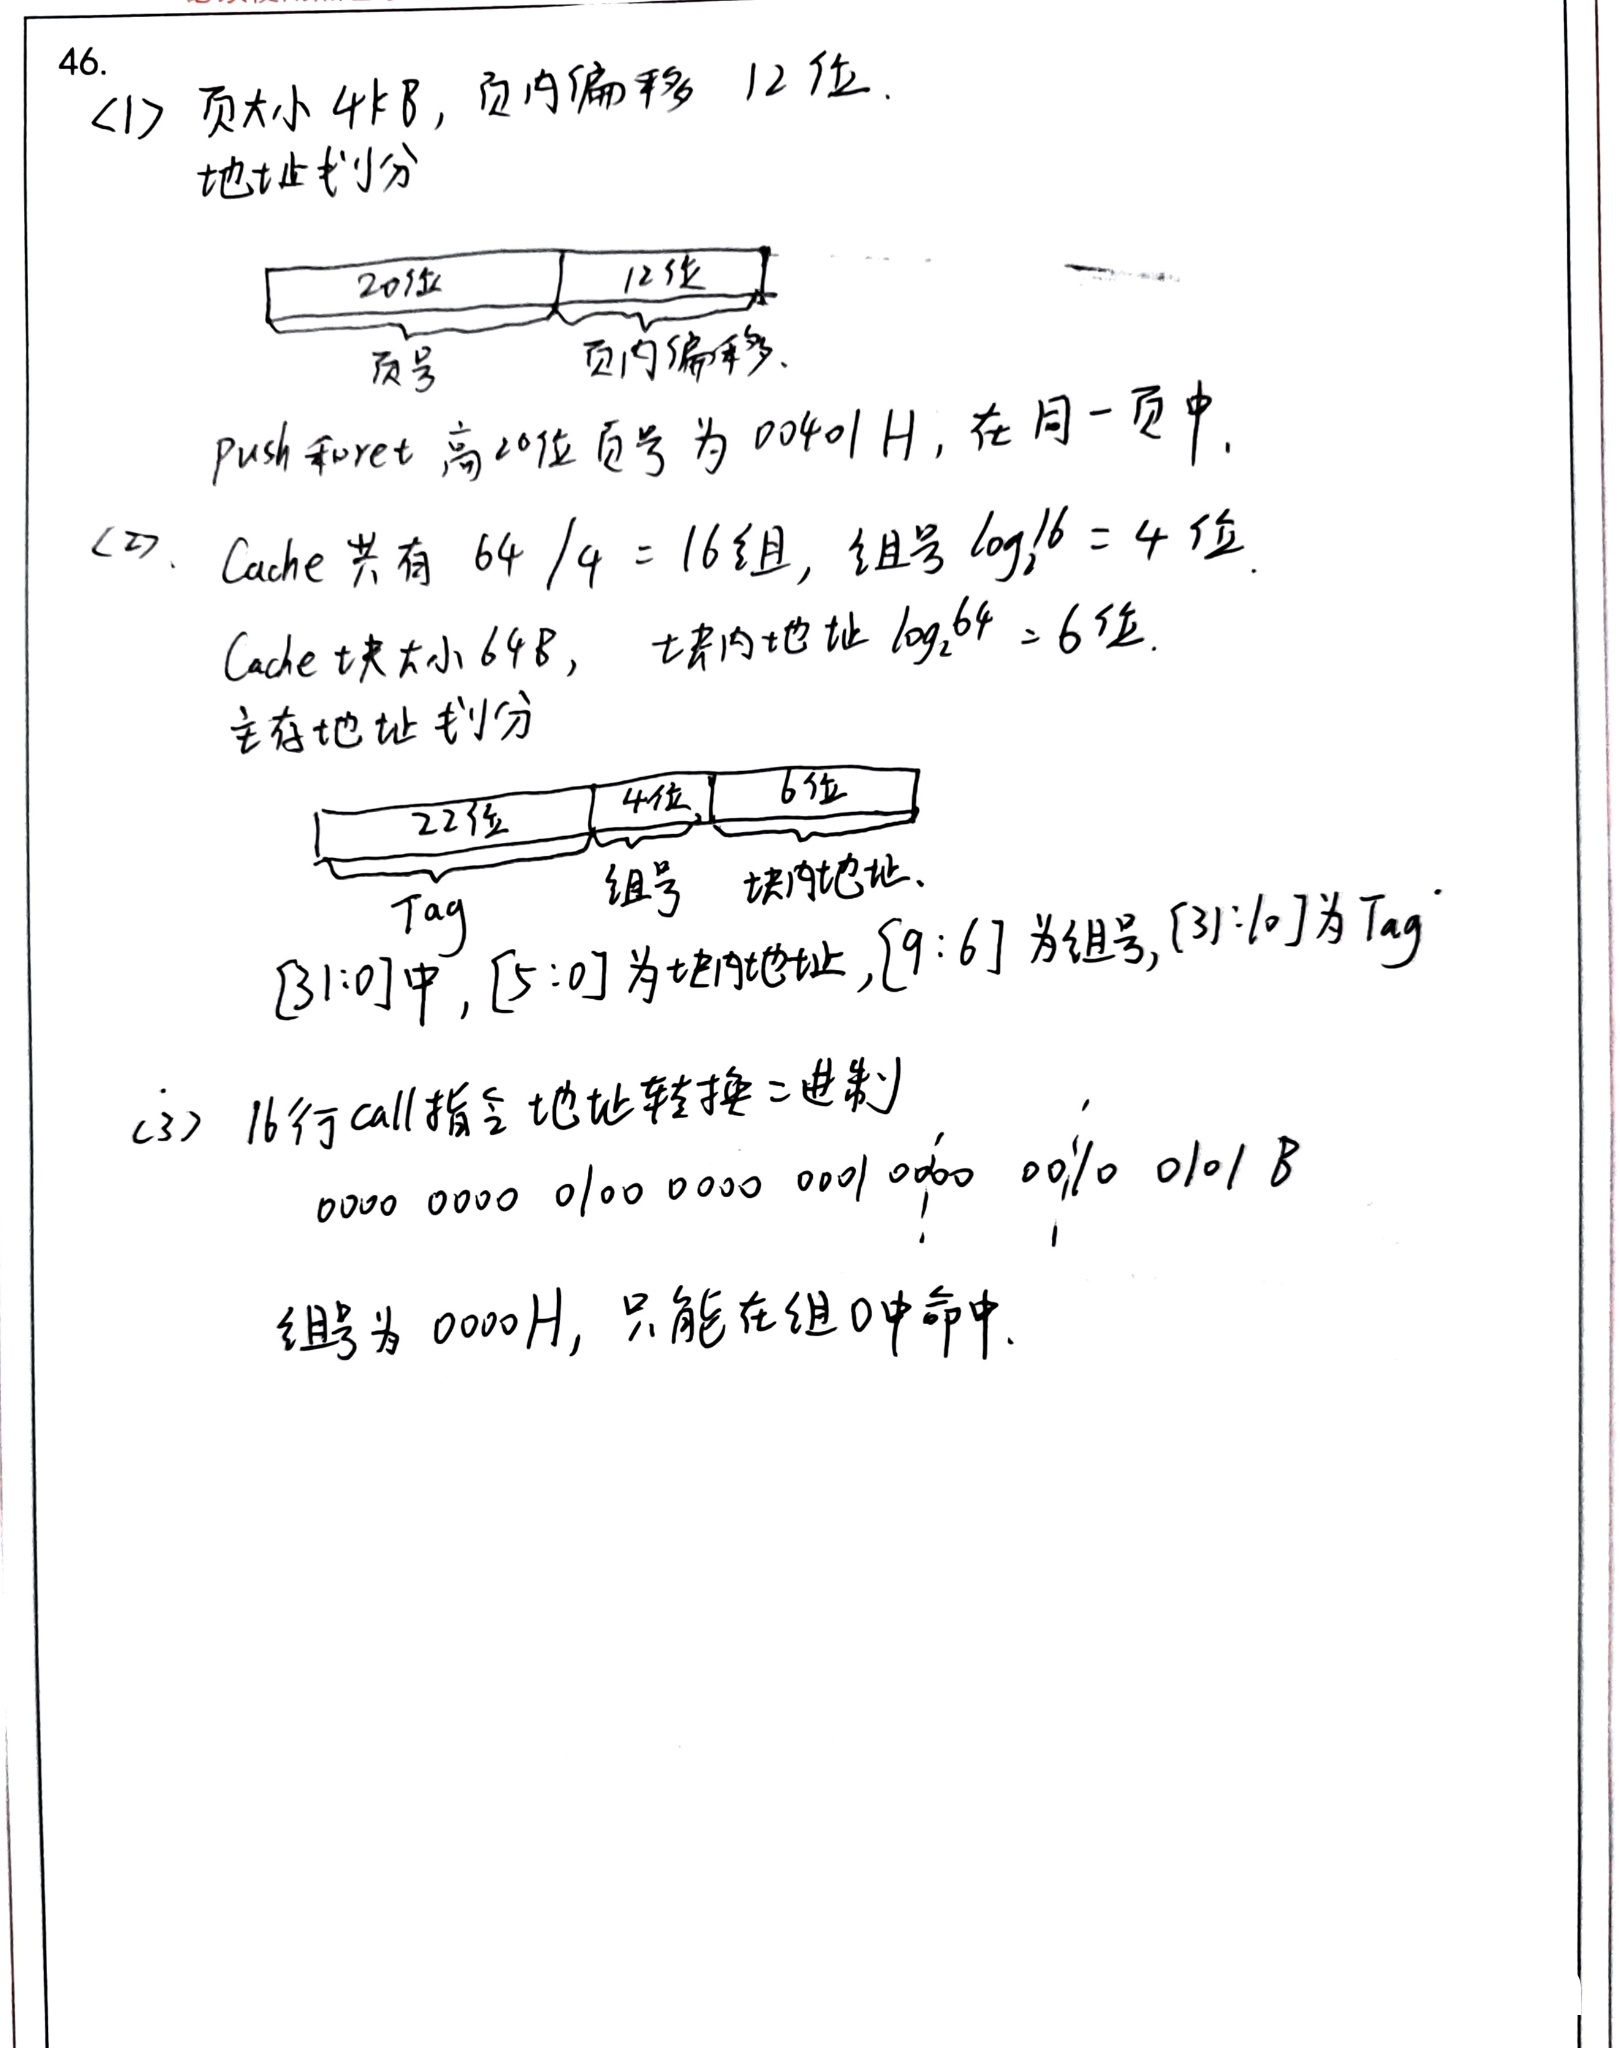 46.
<1> 页大小4kB, 页内偏移 12位.
地址划分
20位 12位
页号 页内偏移.
push和ret 高20位页号为 00401H, 在同一页中.
<2>. Cache共有 64/4 = 16组, 组号 log₂16 = 4位.
Cache块大小64B, 块内地址 log₂64 = 6位.
主存地址划分
22位 4位 6位
Tag 组号 块内地址.
[31:0]中, [5:0]为块内地址, [9:6]为组号, [31:10]为Tag
<3> 16行call指令地址转换二进制
0000 0000 0100 0000 0001 0000 0010 0101 B
组号为 0000H, 只能在组0中命中.